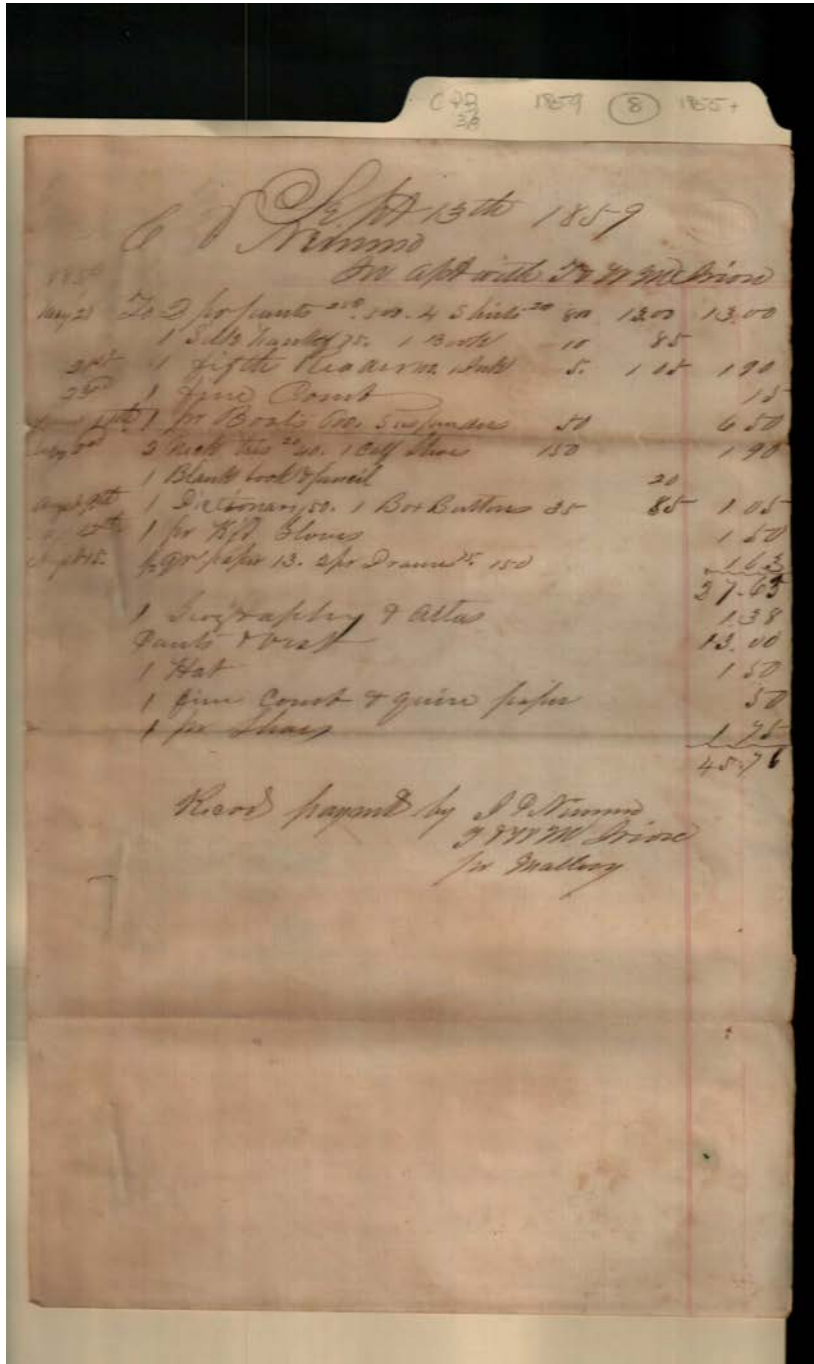 1859 8 1855+
Sept 13th 1859
C P Nimmo
In apt with T & W McCrion
1859
May 21 To 2 pr pants 250. 500. 4 Shirts 20 800 13.00 13.00
1 Silk handkf 75. 1 Book 10 85
21st 1 fifth Reader 100. Ink 5. 1 05 1 90
23rd 1 fine Comb 15
11th 1 pr Boots 600. Suspenders 50 6 50
2 Neck ties 20 40. 1 Calf Shoes 150 1 90
1 Blank book & pencil 20
1 Dictionary 50. 1 Box Buttons 35 85 1.05
1 pr Kid Gloves 1 50
Sept 15. ½ qr paper 13. 2 pr Drawers 75. 150 1.63
27.63
1 Geography & Atlas 1.38
Pants & Vest 13.00
1 Hat 1 50
1 fine Comb & quire paper 50
1 pr Shoes 1.75
45.76
Recvd payment by J P Nimmo
pr Mallory